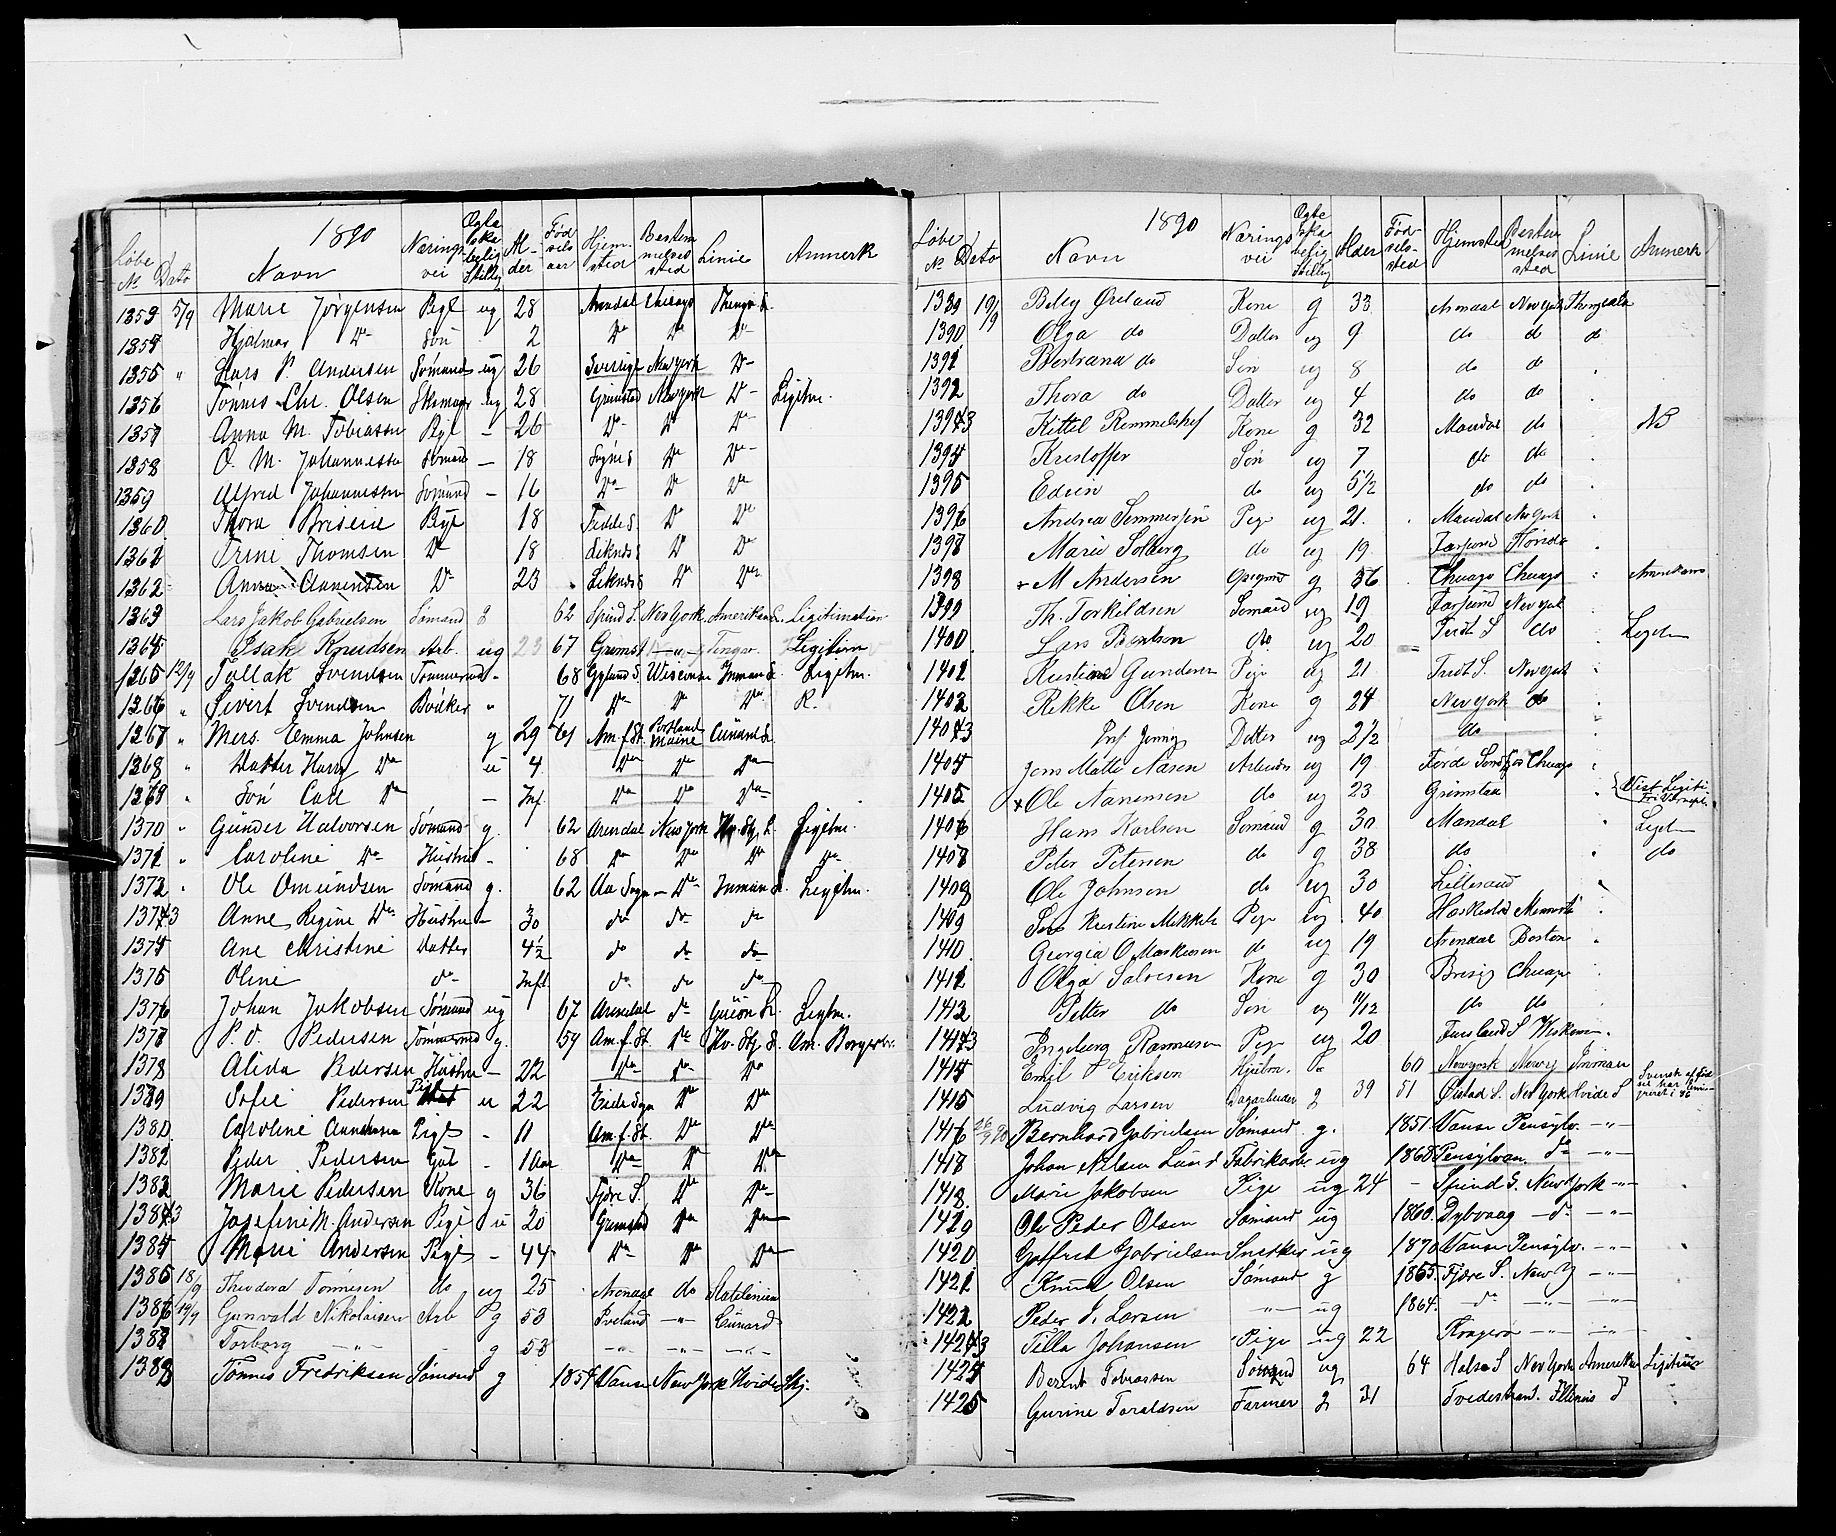 1890
Løbe № Dato Navn Nærings vei Ægte skabelig Stilling Alder Fødselsaar Hjemsted Bestemmelsessted Linie Anmerk
1353 5/9 Marie Jørgensen Pige ug 28 Arendal Chicago Thingv. L.
1354 Hjalmar Do Søn 2 Do Do Do
1355 " Lars P. Andersen Sømand ug 26 Sverrige New York Do
1356 Tønnes Chr. Olsen Skomager ug 28 Grimstad New York Do Legitm.
1357 Anna M. Tobiassen Pige - 26 Do Do Do
1358 O. M. Johannessen Sømand - 18 Søgne S Do Do
1359 Alfred Johannessen Sømand - 16 Do Do Do
1360 Thora Pige 18 Fedde S Do Do
1361 Trine Thomsen Do 18 Liknes S Do Do
1362 Anna Annensen Do 23 Liknes S Do Do
1363 Lars Jakob Gabrielsen Sømand g 62 Spind S. New York Amerikan L. Legitimation
1364 Isak Knudsen Arb. ug 23 67 Grimst - " - Tingv. Legitim
1365 12/9 Tallak Svendsen Tømmermd - 68 Gyland S. Wisconsin Inman L. Legitm.
1366 " Sivert Svendsen Bødker " 71 Do Do Do R.
1367 " Mers. Emma Johnsen g 29 61 Am. f. St. Portland Maine Cunard L.
1368 " Datter Harry Do u 4 Do Do Do
1369 " Søn Carl Do - Inf. Do Do Do
1370 " Gunder Halvorsen Sømand g. 62 Arendal New York Hv. Stj. L. Legitm.
1371 " Caroline Do Hustru - 68 Do Do Do Do
1372 " Ole Omundsen Sømand g. 62 Aa Sogn - Do Inman L. Legitm.
1373 Anne Regine Do Hustru - 30 do do do
1374 Ane Christine Datter 4½ do do do
1375 Oline do Inft do do do
1376 Johan Jakobsen Sømand ug 67 Arendal do Guion L. Legtm.
1377 P. O. Pedersen Tømmermd g. 54 Am. f. St. Do Hv. Stj. L. Am. Borgerbr.
1378 Alida Pedersen Hustru - 22 Do Do Do
1379 Sofie Pedersen Pige u 22 Eide Sogn Do Do
1380 Caroline Pige - 11 Am. f. St. Do Do
1381 Peder Pedersen Gut - 1 Aar Do Do Do
1382 Marie Pedersen Kone g 36 Fjære S. Do Do
1383 Josefine M. Andersen Pige u 20 Grimstad Do Do
1384 Marie Andersen Pige - 44 Do Do Do
1385 18/9 Theodora Tønnesen do ug 25 Arendal do Statelinien
1386 19/9 Gunvald Nikolaisen Arb g 53 Iveland - " - Cunard
1387 Torborg - " - g 53 - " - - " - - " -
1388 Tønnes Fredriksen Sømand g 1854 Vanse New York Hvide Stj.
1890
Løbe № Dato Navn Nærings vei Ægteskabelig Stillig Alder Fødselssted Hjemsted Bestemmelsessted Linie Anmerk
1389 19/9 Betsy Ørland Kone g 33 Arendal New York Thingvalla
1390 Olga do Datter ug 9 do do do
1391 Bertrand do Søn ug 8 do do
1392 Thora do Datter ug 4 do do
1393 Kittel Remmelshef Kone g 32 Mandal do NB
1394 Kristoffer Søn ug 7 do do
1395 Edvin do ug 5½ do do
1396 Andrea Pige ug 21 Mandal New York
1397 Marie Solberg do ug 19 Farsund Florida
1398 × M Andersen g 36 Chicago Chicago Amerikans
1399 Th. Torkildsen Sømand ug 19 Farsund New York
1400 Lars do ug 20 S do Legitm
1401 Kristine Gundersen Pige ug 21 S. New York
1402 Rikke Olsen Kone g 24 New York do
1403 Jenny Datter ug 2½ do
1404 Jens Matte Arbeider ug 19 Førde Chicago
1405 × Ole Nannesen do ug 23 Grimstad Vist Legiti
1406 Hans Karlsen Sømand g 30 Mandal Legitm
1407 Peter Petersen do g 38 do do
1408 Ole Johnsen do ug 30 Lillesand
1409 Kristine Mikkels Pige ug 40
1410 Georgia O. Markussen do ug 19 Arendal Boston
1411 Olga Salvesen Kone g 30 Chicago
1412 Petter do Søn ug 11/12 do do
1413 Ingeborg Rasmussen Pige ug 20
1414 Emil Eriksen 60 New york New y Inman
1415 Ludvig Larsen Dagarbeider g 39 51 Øiestad S. New York Hvide S
1416 26/9 90 Bernhard Gabrielsen Sømand g. 1851 Vanse Pensylv. - " -
1417 Johan Nilsen Lund Fabrikarb ug 1868 Pensylvan. do - " -
1418 Marie Jakobsen Pige ug 24 - Spind S. New York - " -
1419 Ole Peder Olsen Sømand ug 1860. Dybvaag - do - " -
1420 Gotfred Gabrielsen Snedker ug 1870 Vanse Pensylv. - " -
1421 Knud Olsen Sømand g 1865 Fjære S. New Y - " -
1422 Peder J. Larsen - " - ug 1864. - do - " - - " -
1423 Tilla Johansen Pige ug 22 Kragerø - " - - " -
1424 Berent Tobiassen Sømand ug 64 Halse S New York Amerikan Legitim
1425 Gurine Taraldsen Farmer g 31 Tvedestrand. Illinois